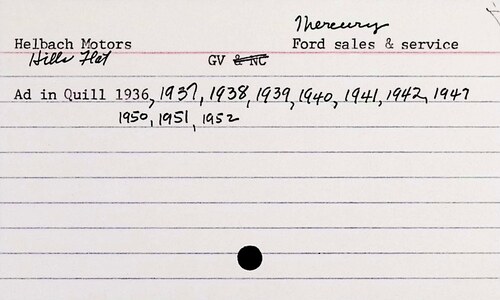 Mercury
Helbach Motors Ford sales & service
Hills Flat GV & NC
Ad in Quill 1936, 1937, 1938, 1939, 1940, 1941, 1942, 1947
1950, 1951, 1952